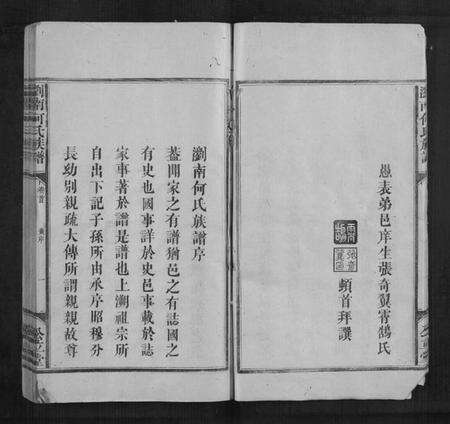 愚表弟邑庠生張奇翼霄鵠氏
頓首拜譔
瀏南何氏族譜序
蓋聞家之有譜猶邑之有誌國之
有史也國事詳於史邑事載於誌
家事著於譜是譜也上溯祖宗所
自出下記子孫所由承序昭穆分
長幼別親疏大傳所謂親親故尊
瀏南何氏族譜
卷首